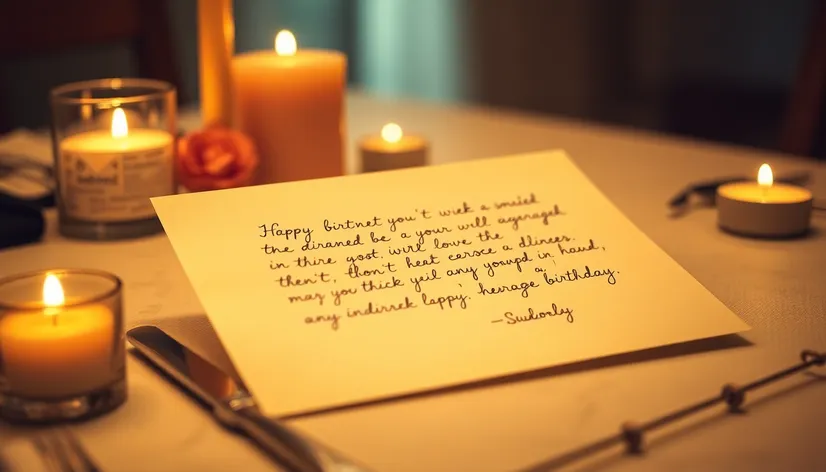 Happy birtnet you't wek a smied
the diraned be a your will agyrageh
in thire gost. wirl lowe the
then't, thon't heat carsce a dlinees.
may you thick yeil any younpd in haud,
any indirrck lappy.' herrage birthday.
—Suuborly